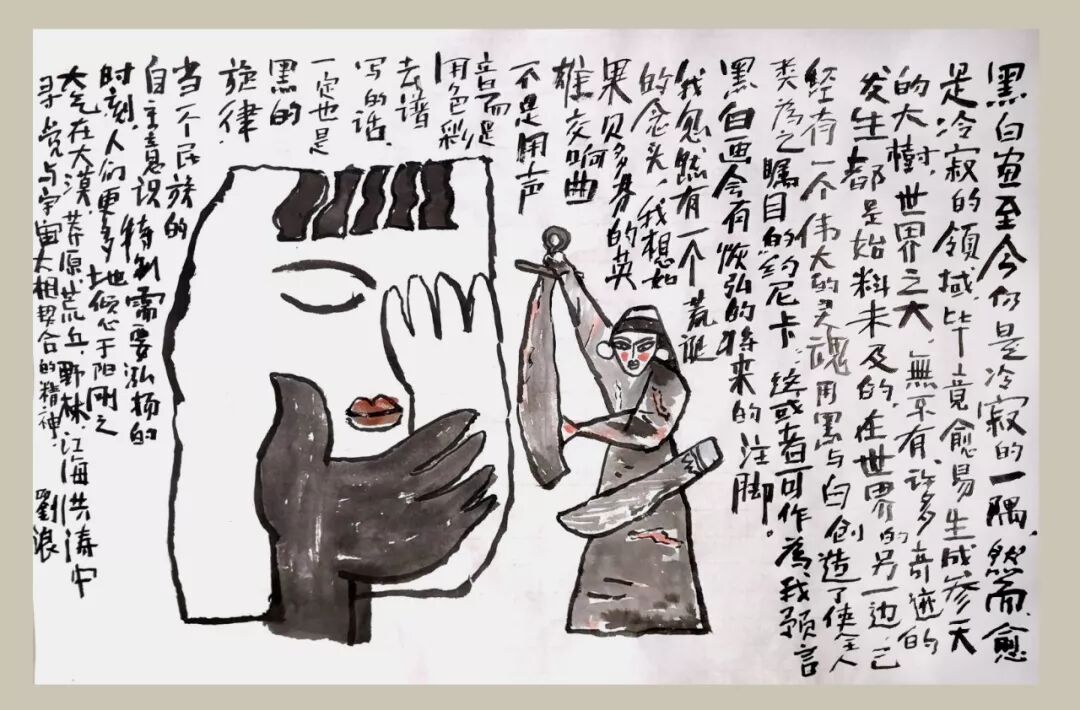 黑白画至今仍是冷寂的一隅,然而,愈
是冷寂的领域,毕竟愈易生成参天
的大樹,世界之大,無不有,许多奇迹的
发生都是始料未及的,在世界的另一边,已
经有一个伟大的灵魂用黑与白创造了使全人
类為之瞩目的约尼卡.这或者可作為我预言
黑白画会有恢弘的将来的注脚。
我忽然有一个荒诞
的念头,我想如
果贝多芬的英
雄交响曲
不是用声
音而是
用色彩
去谱
写的话,
一定也是
黑的
旋律.
当一个民族的
自主意识特别需要泓扬的
时刻,人们更多地倾心于阳刚之
大气在大漠,莽原,荒丘,野林,江海洪涛中
寻觉与宇宙大相契合的精神.
劉浪